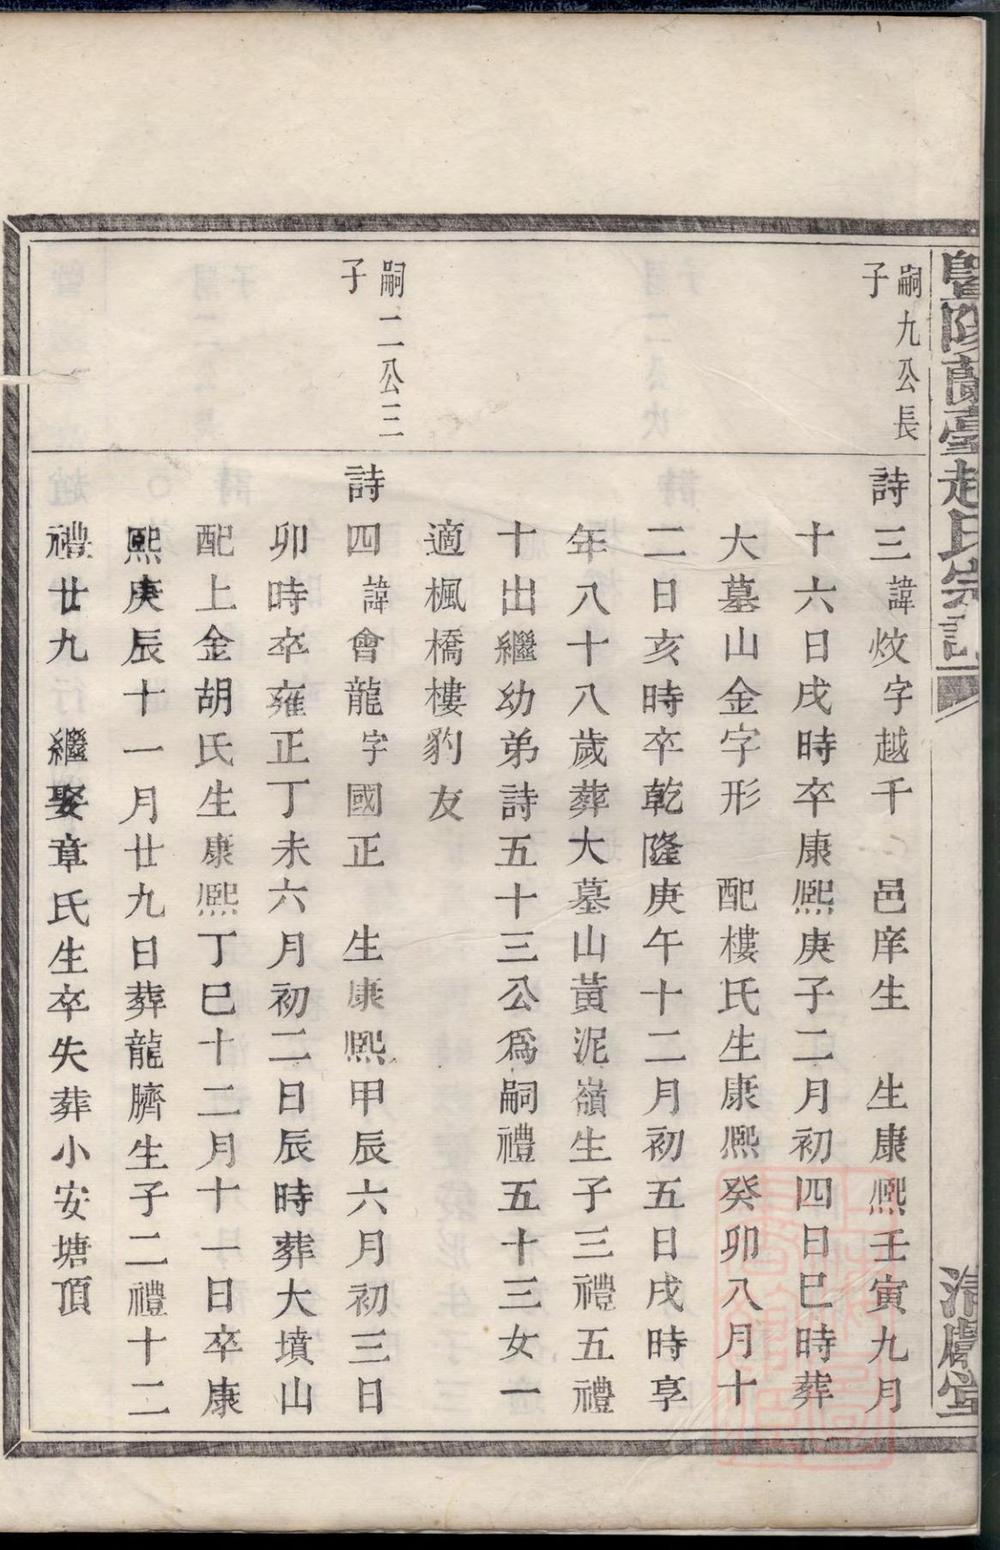 暨陽蘭臺趙氏宗譜
清獻堂
嗣九公長
子
詩三諱炆字越千 邑庠生 生康熙壬寅九月
十六日戌時卒康熙庚子二月初四日巳時葬
大墓山金字形 配樓氏生康熙癸卯八月十
二日亥時卒乾隆庚午十二月初五日戌時享
年八十八歲葬大墓山黃泥嶺生子三禮五禮
十出繼幼弟詩五十三公爲嗣禮五十三女一
適楓橋樓豹友
嗣二公三
子
詩四諱會龍字國正 生康熙甲辰六月初三日
卯時卒雍正丁未六月初二日辰時葬大墳山
配上金胡氏生康熙丁巳十二月十一日卒康
熙庚辰十一月廿九日葬龍臍生子二禮十二
禮廿九 繼娶章氏生卒失葬小安塘頂